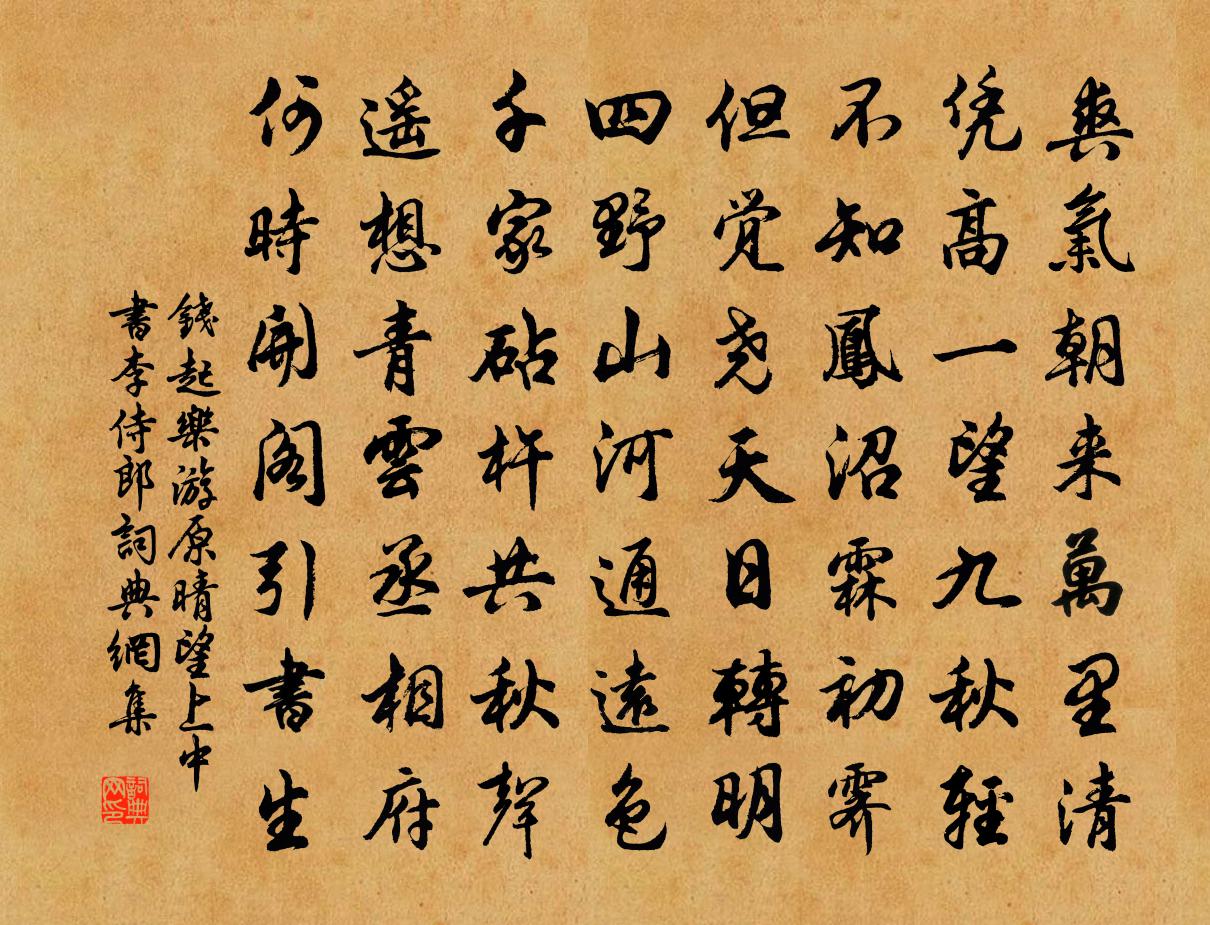 爽氣朝来萬里清
凭高一望九秋輕
不知鳳沼霖初霽
但覚尭天日轉明
四野山河通遠色
千家砧杵共秋聲
遥想青雲丞相府
何時開閣引書生
錢起樂游原晴望上中
書李侍郎詞典網集
詞典网印